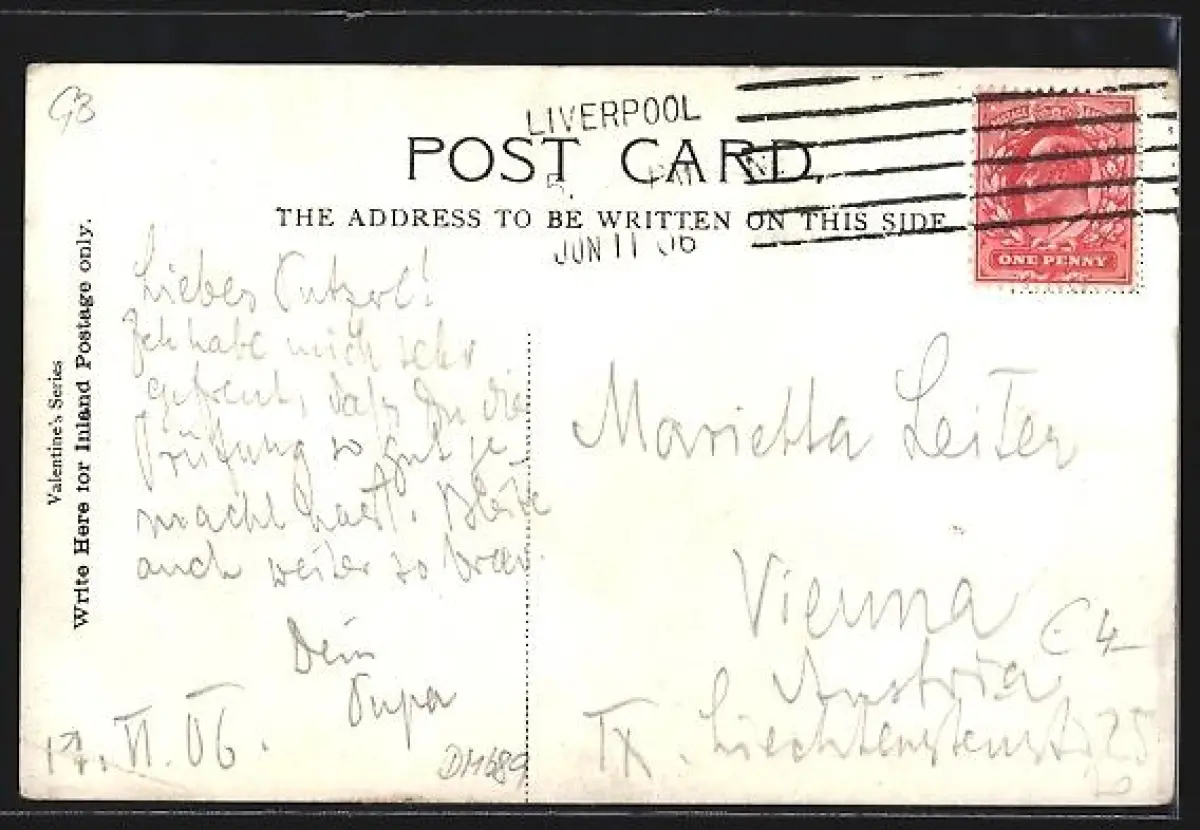 GB
LIVERPOOL
POST CARD.
PM
THE ADDRESS TO BE WRITTEN ON THIS SIDE
JUN 11 06
ONE PENNY
Valentine's Series
Write Here for Inland Postage only.
Liebes Putzerl!
Ich habe mich sehr
gefreut, daß Du die
Prüfung so gut ge-
macht hast. Bleibe
auch weiter so brav.
Dein
Papa
VI. 06.
Marietta Leiter
Vienna
Austria
IX. Liechtensteinstr 25
€ 4-
DM689